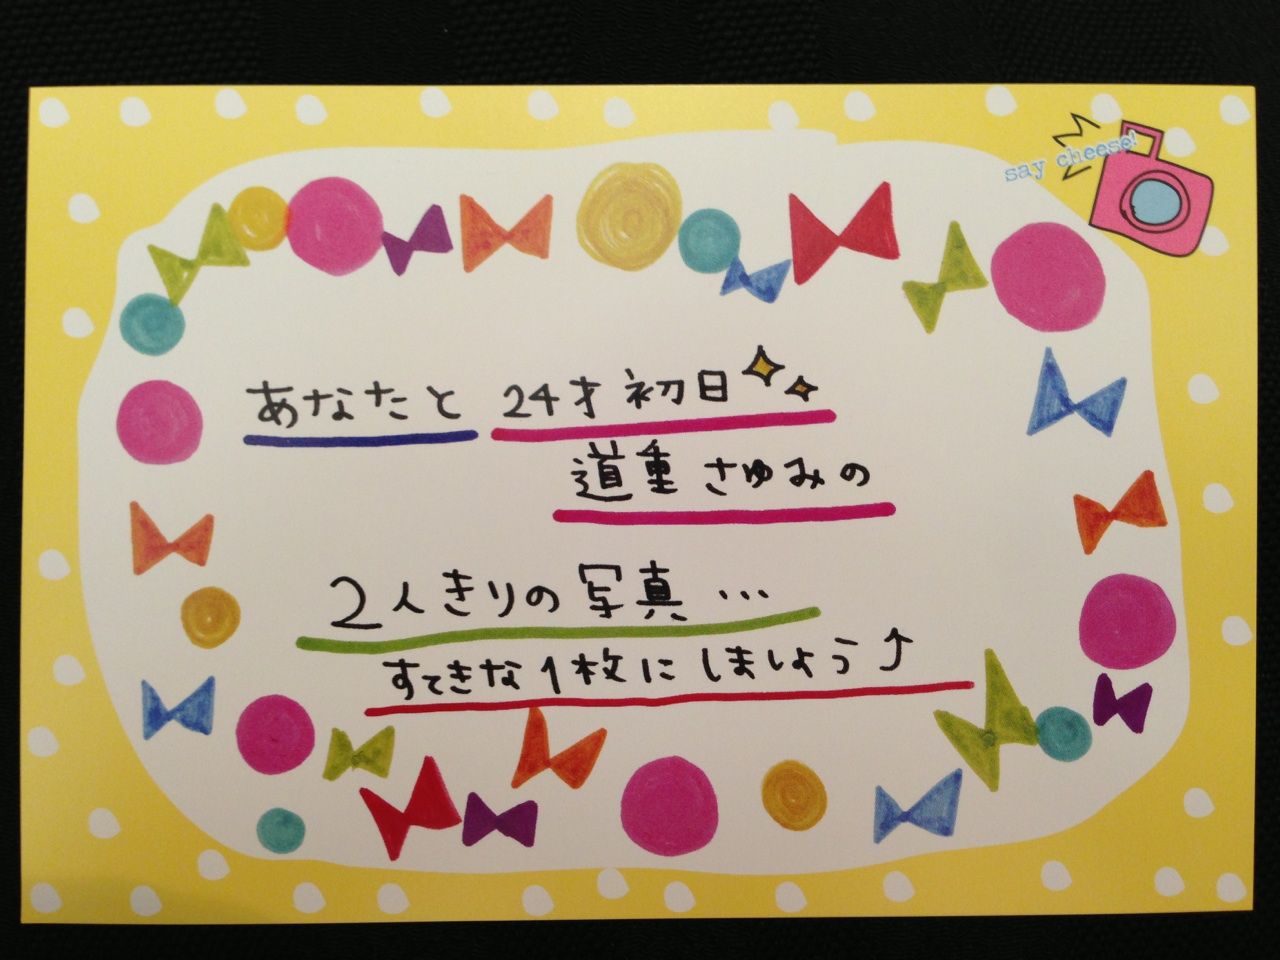 say cheese!
あなたと 24才初日
道重さゆみの
2人きりの写真…
すてきな1枚にしましょう⤴